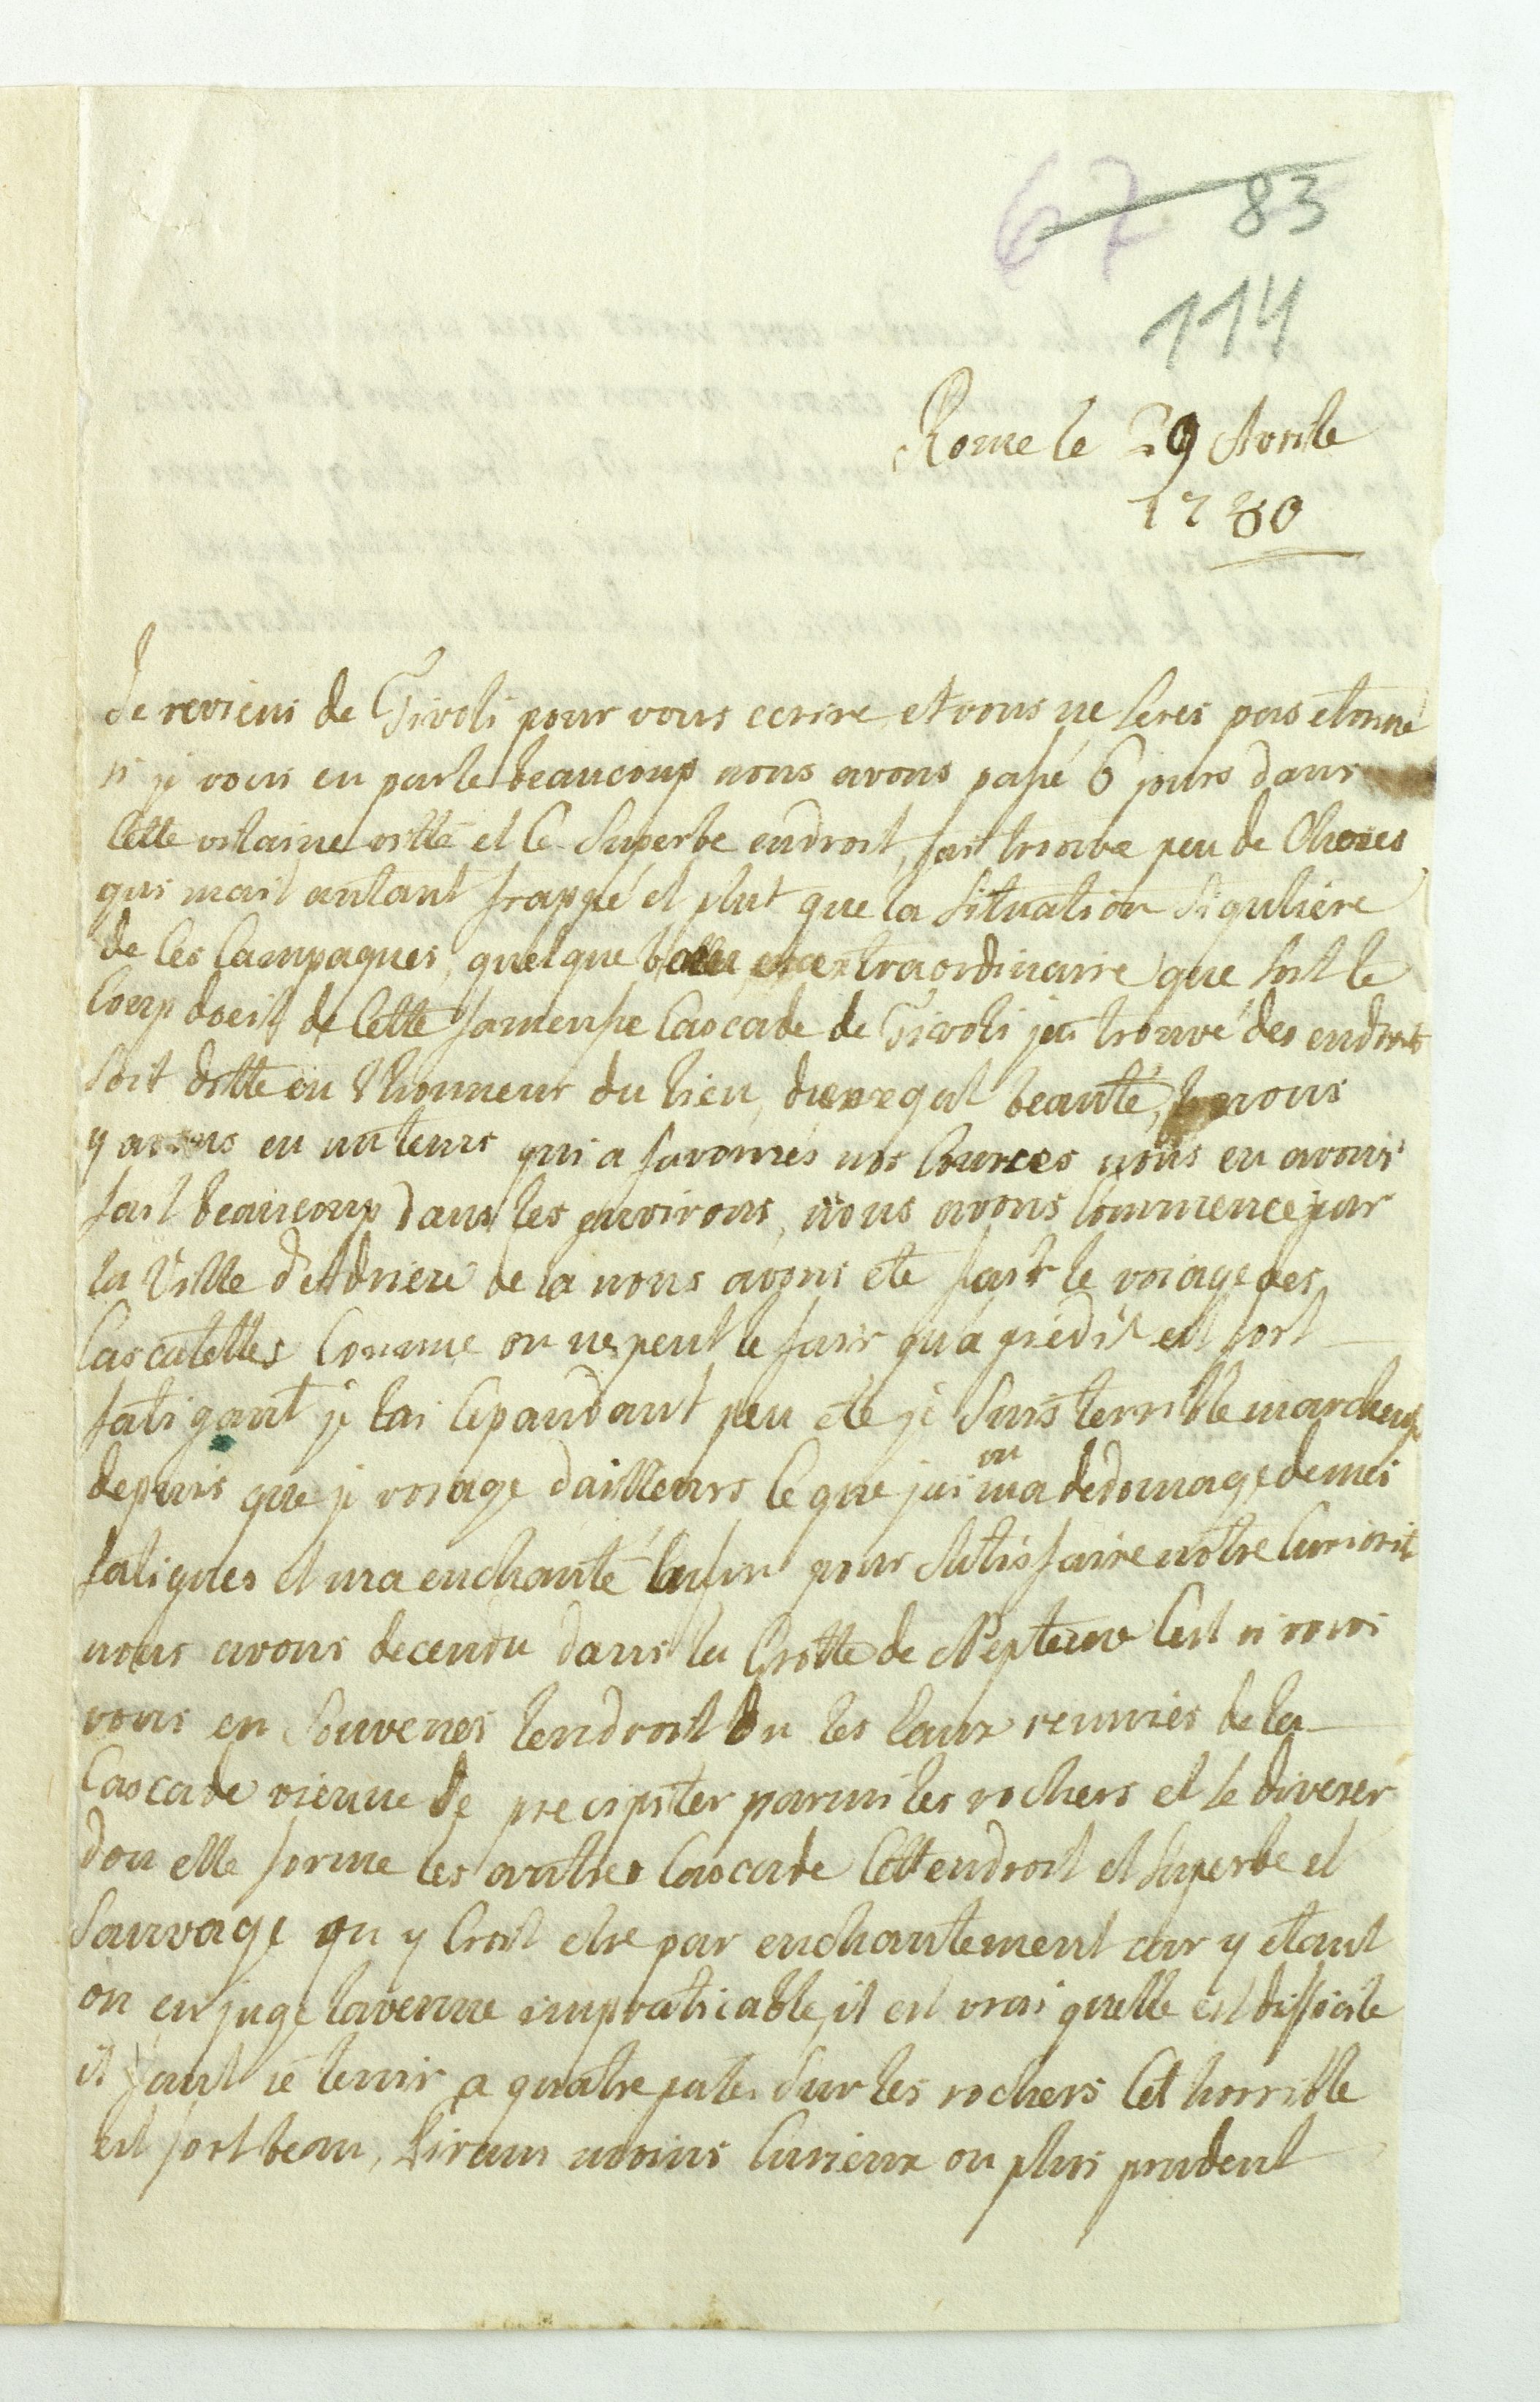 67 83
114
Rome le 29 Avrile
1780
Je reviens de Tivoli pour vous ecrire et vous ne seres pas etonné
si je vous en parle beaucoup nous avons passé 6 jours dans
cette vilaine ville et ce superbe endroit, jai trouvé peu de choses
qui mait autant frappé et plut que la situation siguliere
de ces campagnes, quelque extraordinaire que soit le
coup doeil de cette fameuse cascade de Tivoli jai trouvé des endroits
soit ditte en lhonneur du lieu, dune egal beauté, nous
y avons eu un tems qui a favorirés nos cources nous en avons
fait beaucoup dans les environs, nous avons commencé par
la Ville d'Adriere de la nous avons ete fair le voiage des
cascatelles comme on ne peut le fair qu'a pied il est fort
fatigant je lai cepandant peu ete je suis terrible marcheuse
depuis que je voiage dailleurs ce que jai vu ma dedomagé de mes
fatigues et ma enchanté enfin pour satisfaire notre curiosit
nous avons decendu dans la Grotte de Neptune cest si vous
vous en souvenes lendroit ou les eaux reunies de la
cascade vienne se precipiter parmi les rochers et se diverser
dou elle forme les autres cascade cett endroit et superbe et
sauvage on y croit etre par enchantement car y etant
on en juge lavenue impraticable, il est vrai quelle est difficile
il faut se tenir a quatre pates sur les rochers cet horrible
est fort beau, moins curieux ou plus prudent